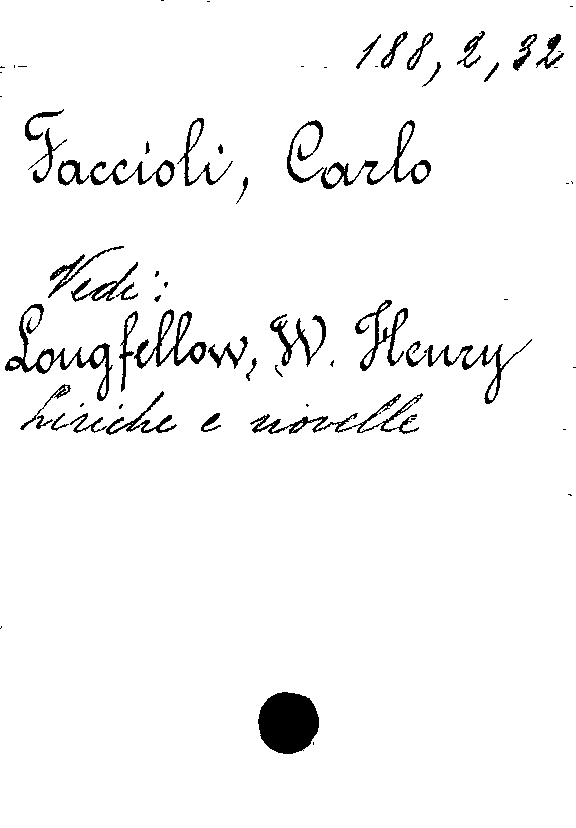 188, 2, 32
Faccioli, Carlo
Vedi:
Longfellow, W. Henry
Liriche e novelle